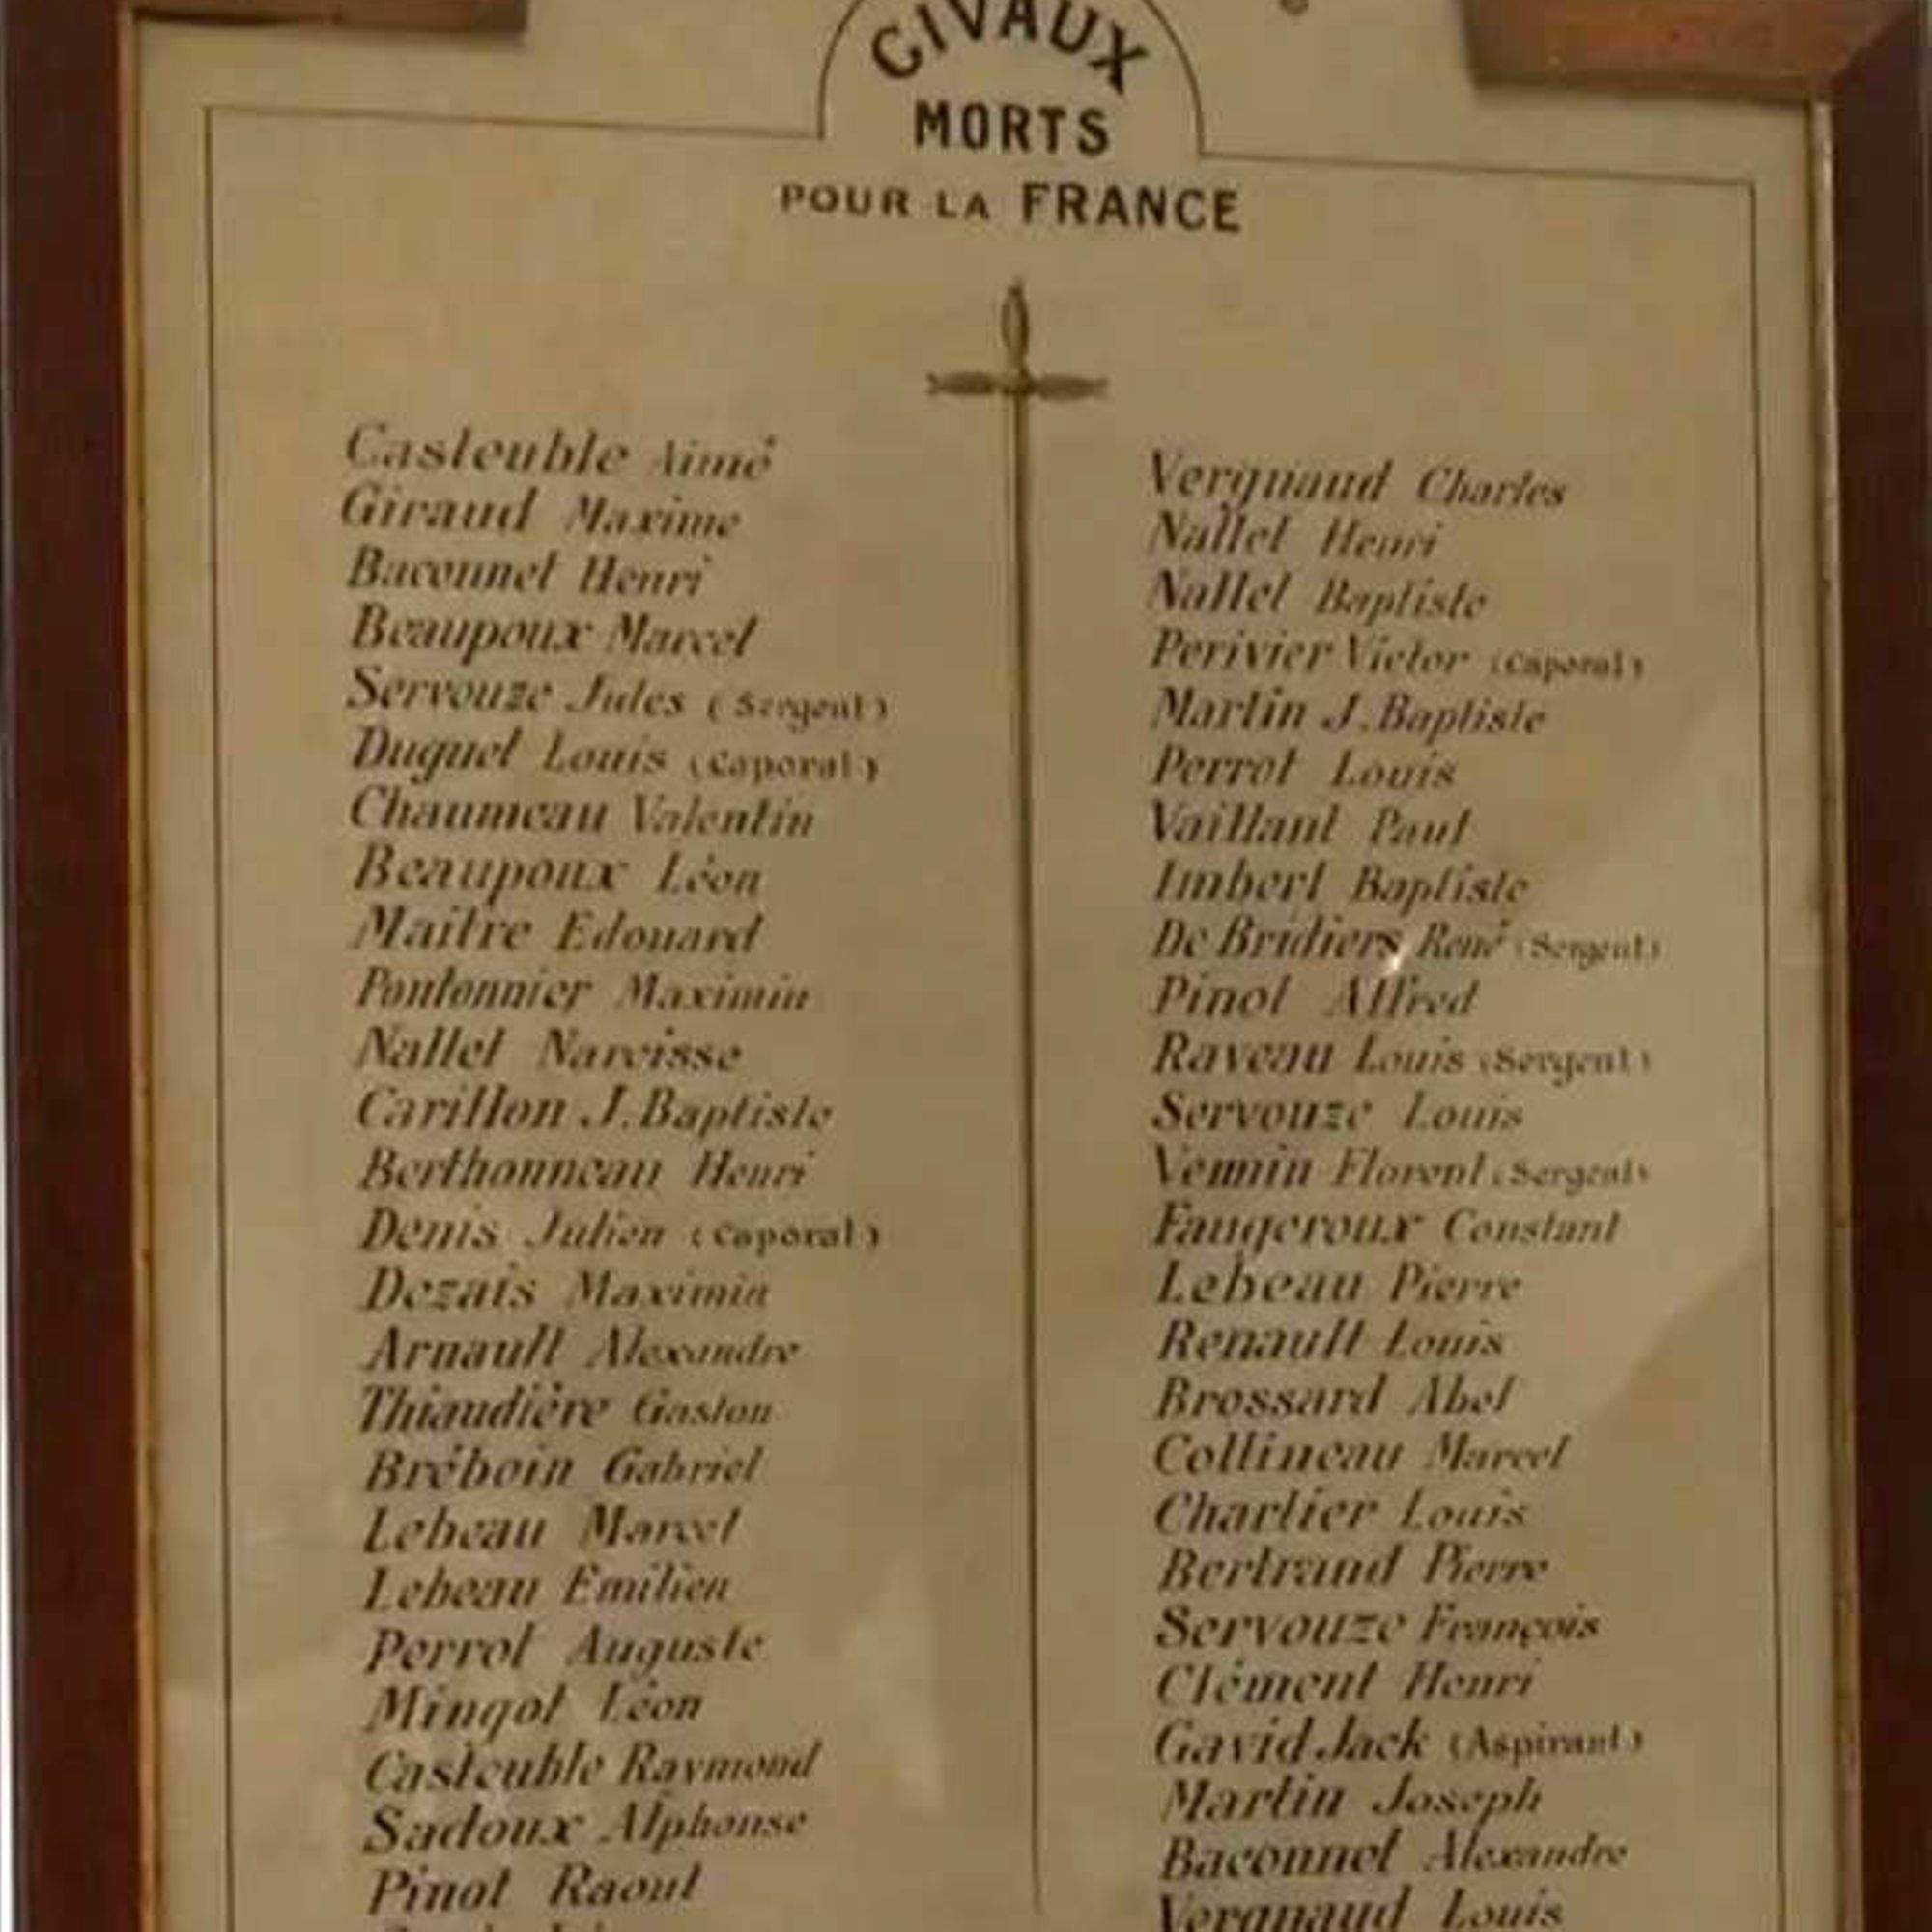 CIVAUX
MORTS
POUR LA FRANCE
Casteuble Aimé
Giraud Maxime
Baconnet Henri
Beaupoux Marcel
Servouze Jules (Sergent)
Duguet Louis (Caporal)
Chaumeau Valentin
Beaupoux Léon
Maitre Edouard
Pontonnier Maximin
Nallet Narcisse
Carillon J. Baptiste
Berthonneau Henri
Denis Julien (Caporal)
Dezais Maximin
Arnault Alexandre
Thiaudière Gaston
Bréboin Gabriel
Lebeau Marcel
Lebeau Emilien
Perrot Auguste
Mingot Léon
Casteuble Raymond
Sadoux Alphonse
Pinot Raoul
Vergnaud Charles
Nallet Henri
Nallet Baptiste
Perivier Victor (Caporal)
Martin J. Baptiste
Perrot Louis
Vaillant Paul
Imbert Baptiste
De Bridiers René (Sergent)
Pinot Alfred
Raveau Louis (Sergent)
Servouze Louis
Vennin Florent (Sergent)
Faugeroux Constant
Lebeau Pierre
Renault Louis
Brossard Abel
Collineau Marcel
Charlier Louis
Bertrand Pierre
Servouze François
Clément Henri
Gavid Jack (Aspirant)
Martin Joseph
Baconnet Alexandre
Vergnaud Louis